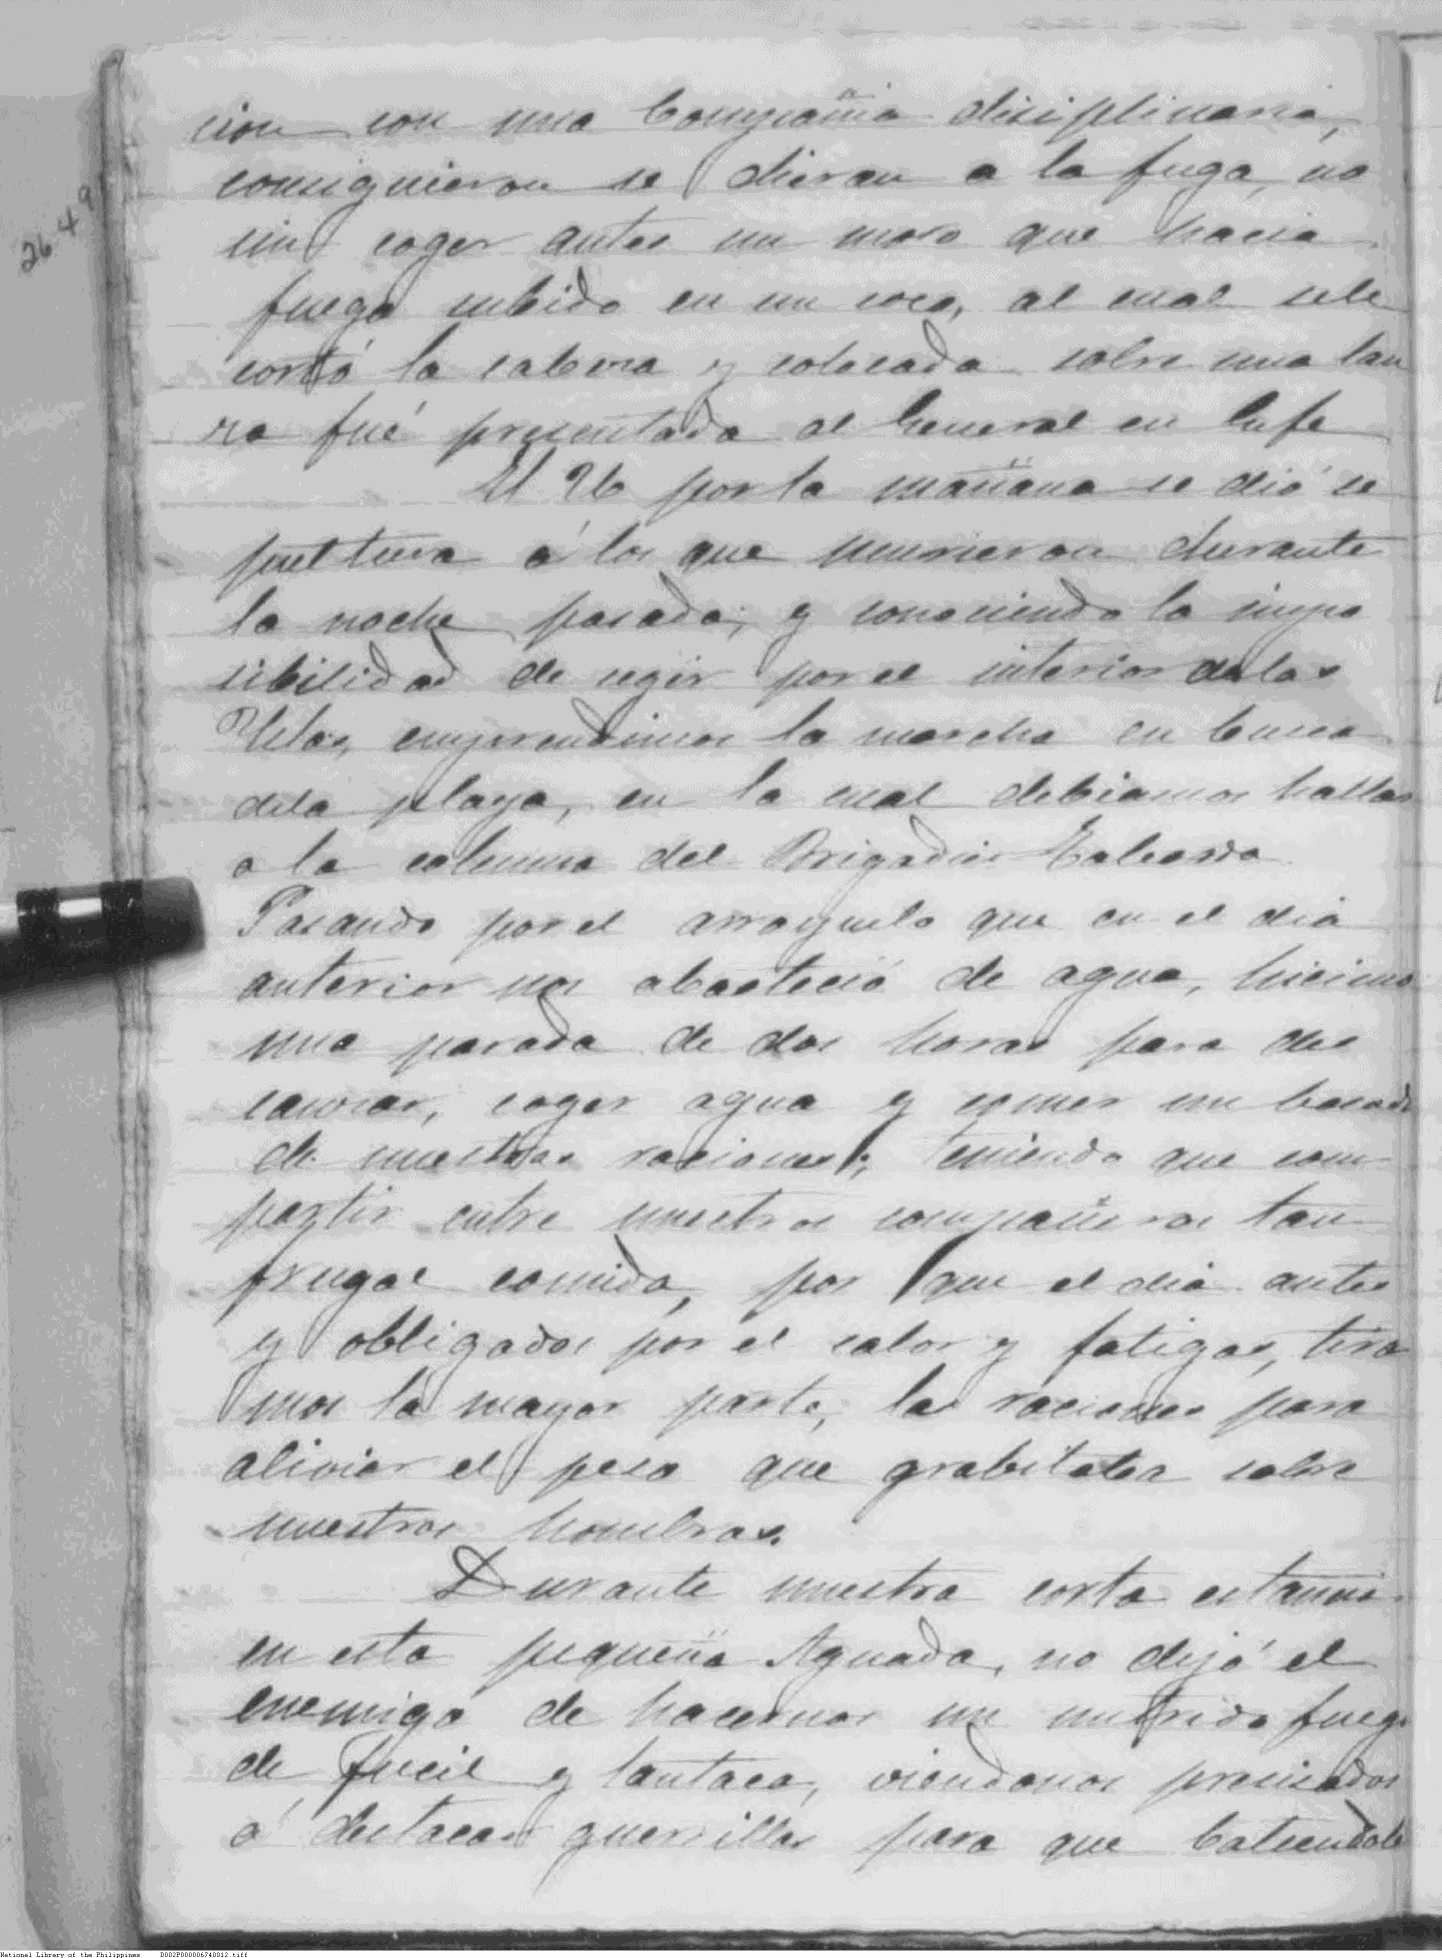 cion con una Compañia disciplinaria,
consiguieron se dieran a la fuga, no
sin coger antes un moro que hacia
fuego subido en un coco, al cual sele
cortó la cabeza y colocada sobre una lan
za fué presentada al General en Gefe
El 26 por la mañana se dió se
pultura á los que murieron durante
la noche pasada; y conociendo la impo
sibilidad de segir por el interior delas
Yslas, emprendimos la marcha en busca
dela playa, en la cual debiamos hallar
a la columna del Brigadier
Pasando por el arroyuelo que en el dia
anterior nos abasteció de agua, hicimos
una parada de dos horas para des
cansar, coger agua y comer un bocado
de nuestras raciones; teniendo que com-
partir entre nuestros compañeros tan
frugal comida, por que el dia antes
y obligados por el calor y fatigas, tira
mos la mayor parte, las raciones para
aliviar el peso que grabitaba sobre
nuestros hombros.
Durante nuestra corta estancia
en esta pequeña Aguada, no dejó el
enemigo de hacernos un nutrido fuego
de fucil y lantaca, viendonos precisados
á destacar guerrillas para que batiendole
26 49
National Library of the Philippines D002P000006740012.tiff